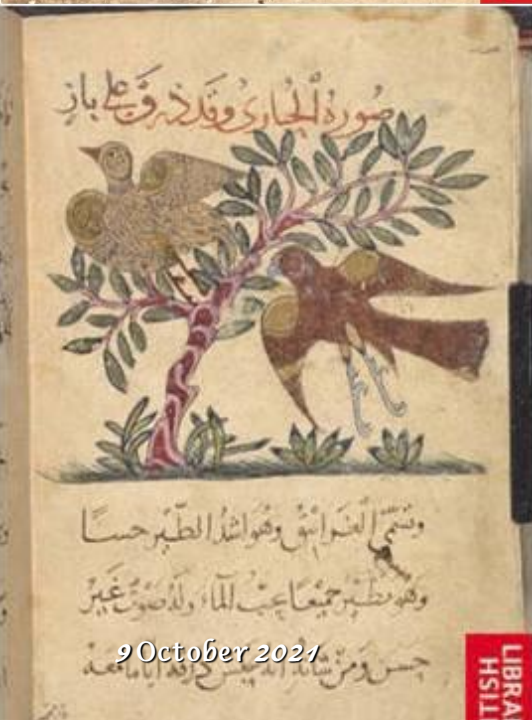 صورة الحبارى وقد ذرق على باز
وتسمى الغرانيق وهو اشد الطير حسا
وهو يطير جميعا يحب الماء وله صوت غير
حسن ومن شانه انه
9 October 2021
TISH
LIBRA